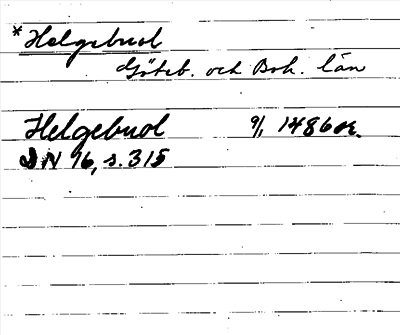 *Helgebuol
Göteb. och Boh. län
Helgebuol 9/1 1486 or.
DN 16, s. 315